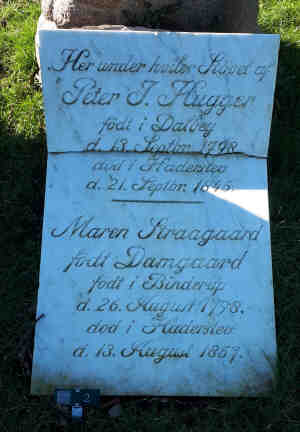 Her under hviler Støvet af
Peter J. Hugger
født i Dalbey
d. 13. Septbr. 1798.
død i Haderslev
d. 21. Septbr.
Maren Straagaard
født Damgaard
født i Binderup
d. 26. August 1798.
død i Haderslev
d. 13. August 1857.
2